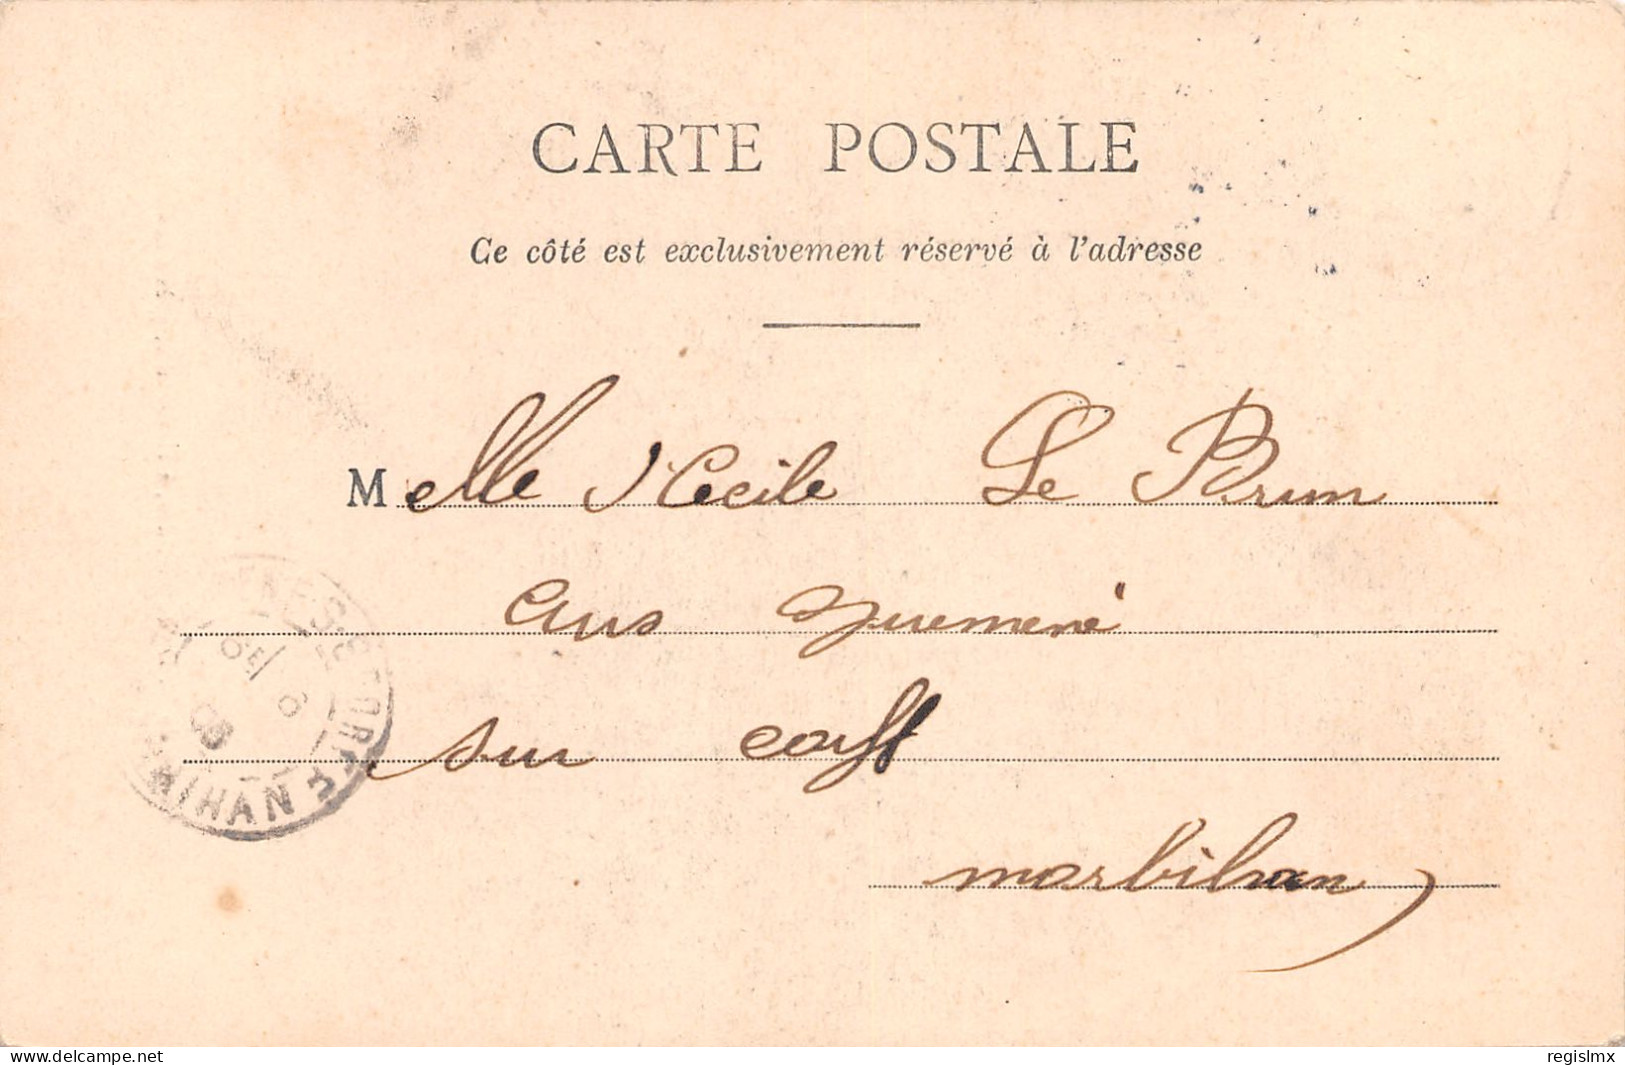 CARTE POSTALE
Ce côté est exclusivement réservé à l'adresse
Melle Cecile Le Brun
aux quemené
sur
morbihan
IHAN
www.delcampe.net
regislmx